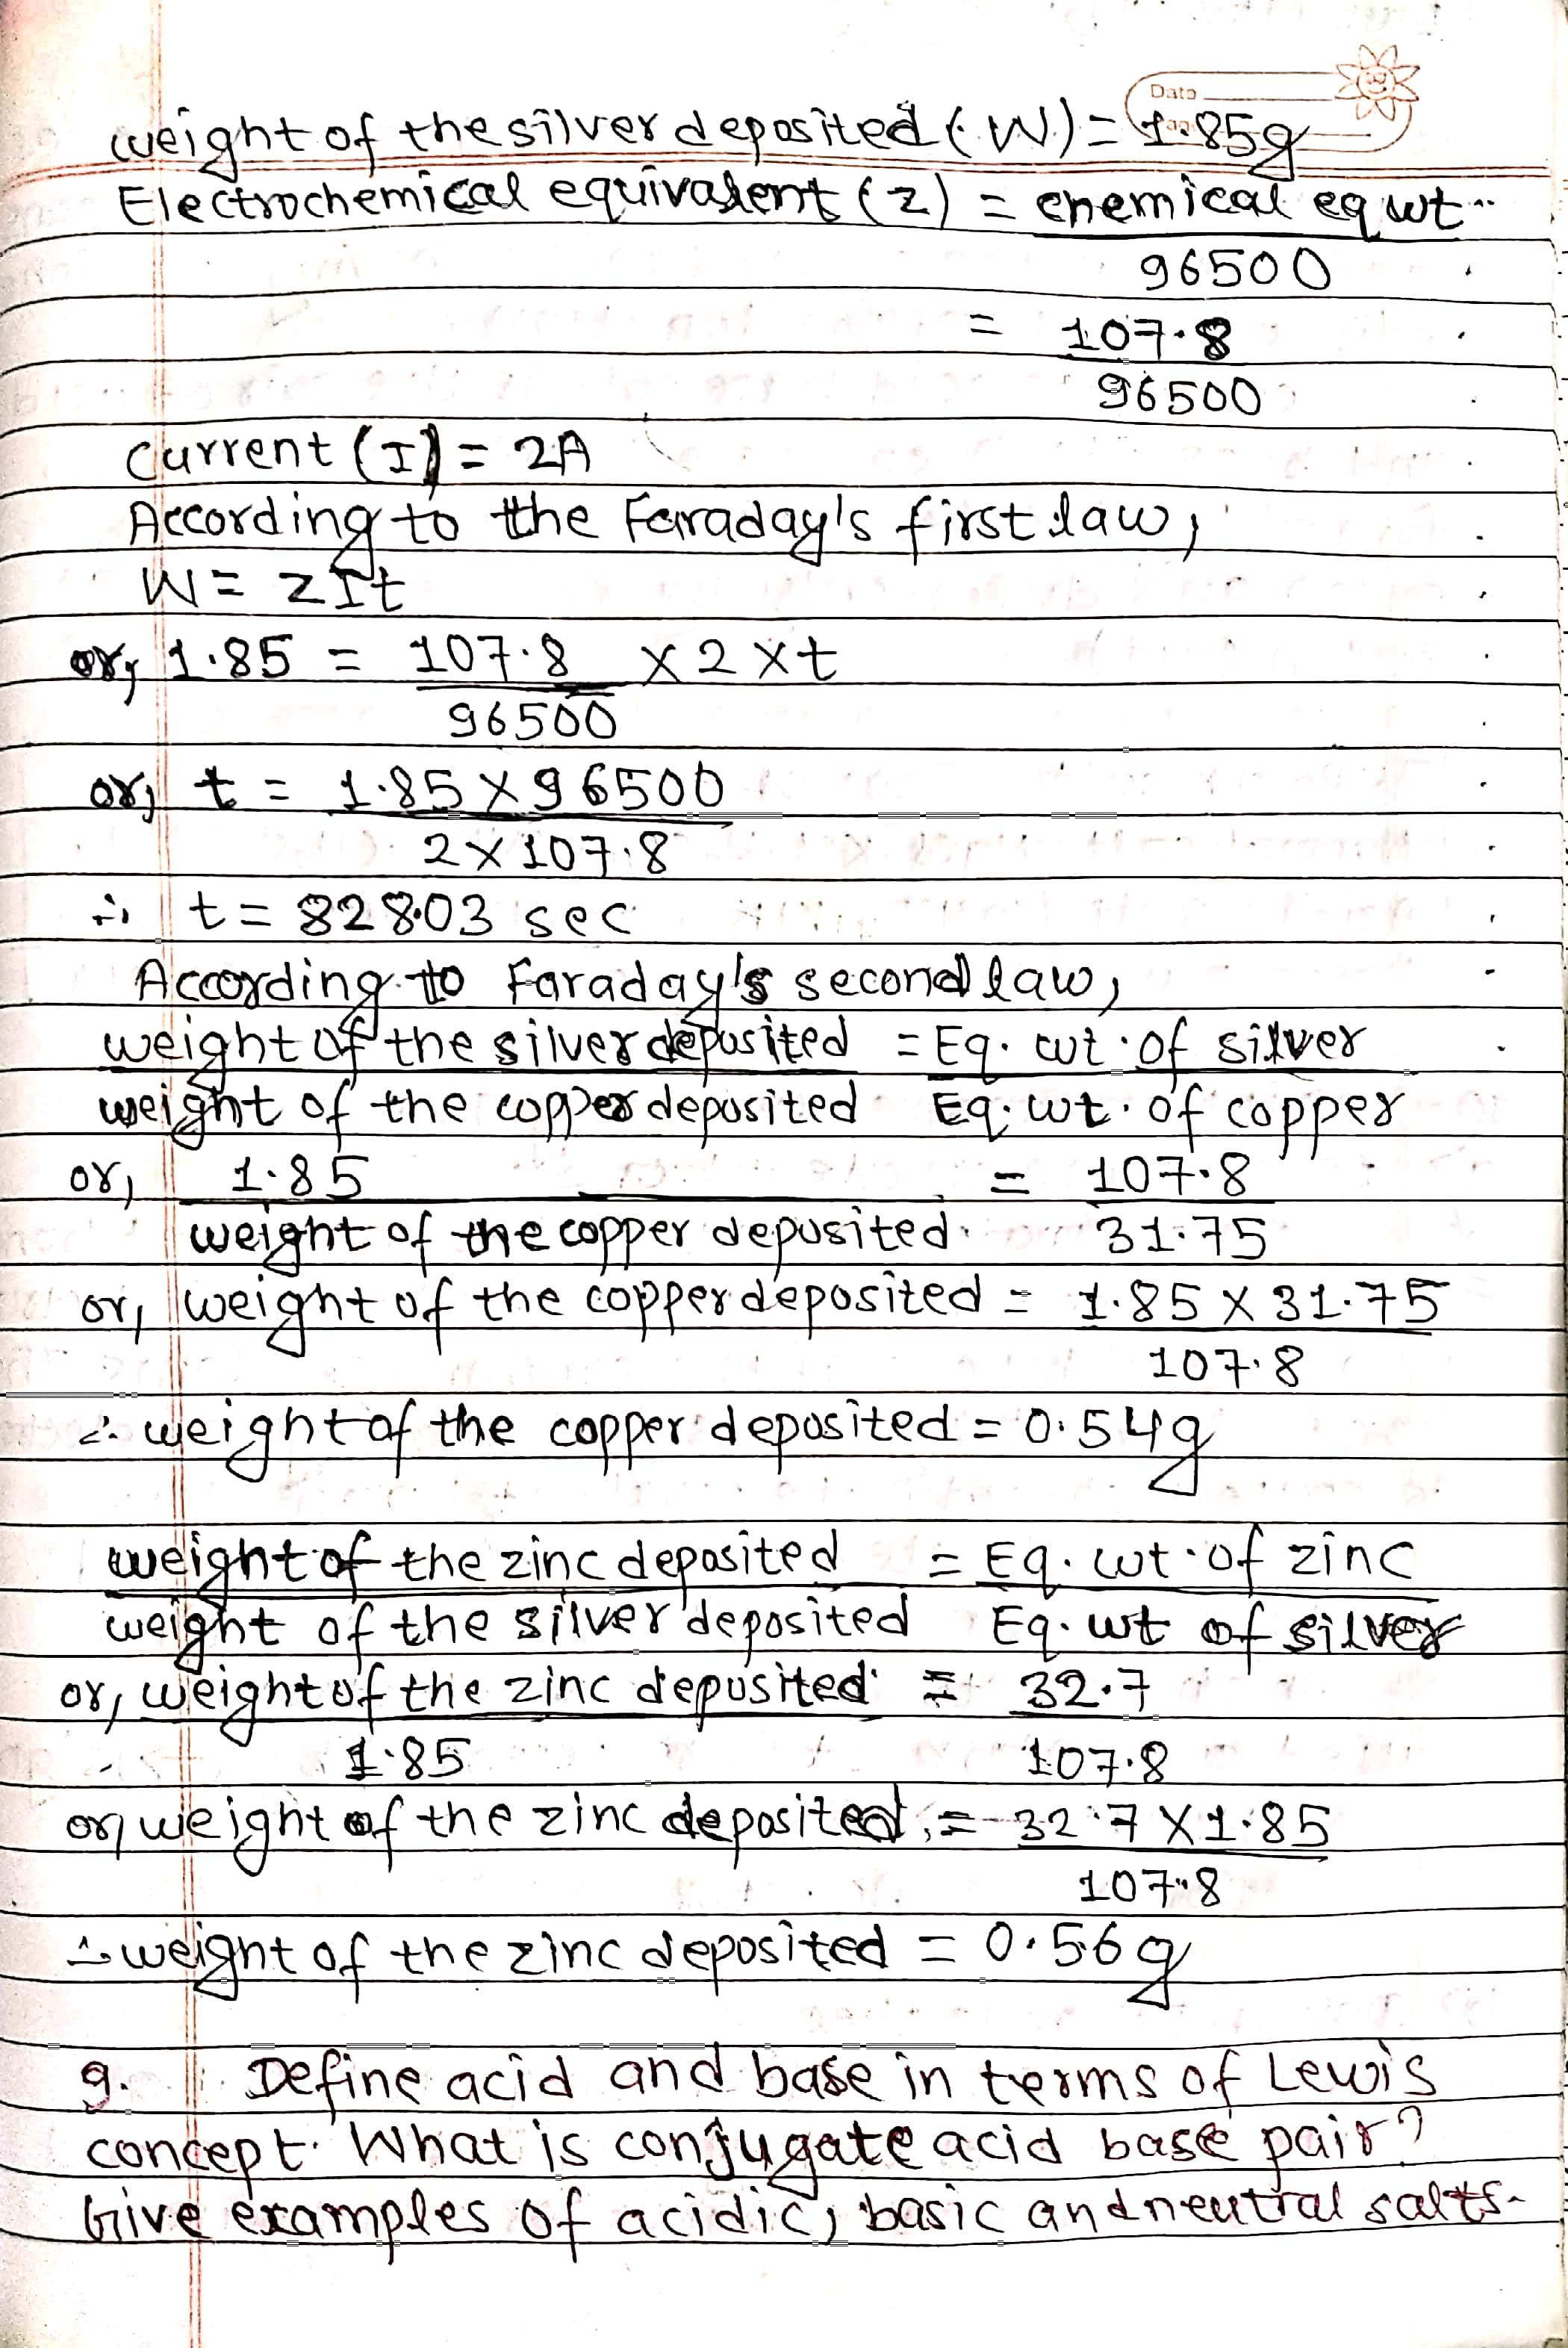 Date
weight of the silver deposited (W) = 1.85g
Electrochemical equivalent (z) = chemical eq wt.
96500
= 107.8
96500
Current (I) = 2A
According to the Faraday's first law,
W = zIt
or, 1.85 = 107.8 × 2 × t
96500
or, t = 1.85 × 96500
2 × 107.8
∴ t = 828.03 sec
According to Faraday's second law,
weight of the silver deposited = Eq. wt. of silver
weight of the copper deposited Eq. wt. of copper
or, 1.85 = 107.8
weight of the copper deposited 31.75
or, weight of the copper deposited = 1.85 × 31.75
107.8
∴ weight of the copper deposited = 0.54g
weight of the zinc deposited = Eq. wt. of zinc
weight of the silver deposited Eq. wt of silver
or, weight of the zinc deposited = 32.7
1.85 107.8
or, weight of the zinc deposited = 32.7 × 1.85
107.8
∴ weight of the zinc deposited = 0.56g
9. Define acid and base in terms of Lewis
concept. What is conjugate acid base pair?
Give examples of acidic, basic and neutral salts.